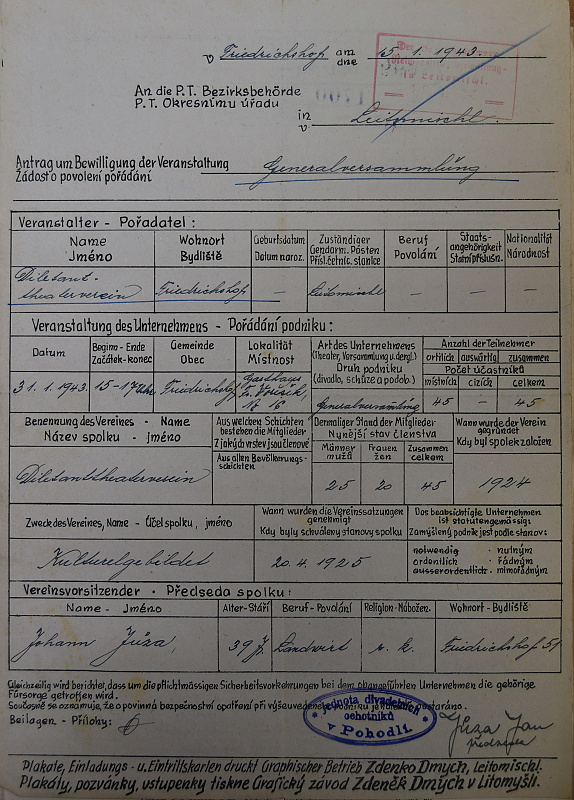 v Friedrichshof am dne 15. 1. 1943.
An die P.T. Bezirksbehörde
P.T. Okresnímu úřadu
in v Leitomischl.
Antrag um Bewilligung der Veranstaltung Generalversammlung
Žádost o povolení pořádání
Veranstalter - Pořadatel:
Name Jméno
Wohnort Bydliště
Geburtsdatum Datum naroz.
Zuständiger Gendarm. Posten Přísl. četnic. stanice
Beruf Povolání
Staats-angehörigkeit Státní příslušn.
Nationalität Národnost
Diletant-theaterverein Friedrichshof — Leitomischl — — —
Veranstaltung des Unternehmens - Pořádání podniku:
Datum
Beginn - Ende Začátek-konec
Gemeinde Obec
Lokalität Místnost
Art des Unternehmens (Theater, Versammlung u. dergl.) Druh podniku (divadlo, schůze a podob.)
Anzahl der Teilnehmer
örtlich auswärtig zusammen
Počet účastníků
místních cizích celkem
31. 1. 1943. 15-17 Uhr Friedrichshof Gasthaus № 16 Generalversammlung 45 — 45
Benennung des Vereines - Name
Název spolku - jméno
Aus welchen Schichten bestehen die Mitglieder
Z jakých vrstev jsou členové
Dermaliger Stand der Mitglieder
Nynější stav členstva
Wann wurde der Verein gegründet
Kdy byl spolek založen
Männer mužů
Frauen žen
Zusammen celkem
Aus allen Bevölkerungs-schichten
Diletanttheaterverein 25 20 45 1924
Zweck des Vereines, Name - Účel spolku, jméno
Wann wurden die Vereinssatzungen genehmigt
Kdy byly schváleny stanovy spolku
Das beabsichtigte Unternehmen ist statutengemäss:
Zamýšlený podnik jest podle stanov:
Kulturelgebildet 20. 4. 1925
notwendig - nutným
ordentlich - řádným
ausserordentlich - mimořádným
Vereinsvorsitzender - Předseda spolku:
Name - Jméno
Alter - Stáří
Beruf - Povolání
Religion - Nábožen.
Wohnort - Bydliště
Johann Jůza, 39 J. Landwirt r. k. Friedrichshof 51
Gleichzeitig wird berichtet, dass um die pflichtmässigen Sicherheitsvorkehrungen bei dem obangeführten Unternehmen die gehörige
Fürsorge getroffen wird.
Současně se oznamuje, že o povinná bezpečnostní opatření při výše uvedeném podniku je postaráno.
Beilagen - Přílohy:
Jednota divadelních ochotníků v Pohodlí.
Jůza Jan
předseda
Plakate, Einladungs - u. Eintrittskarten druckt Graphischer Betrieb Zdenko Dmych, Leitomischl.
Plakáty, pozvánky, vstupenky tiskne Grafický závod Zdeněk Dmych v Litomyšli.